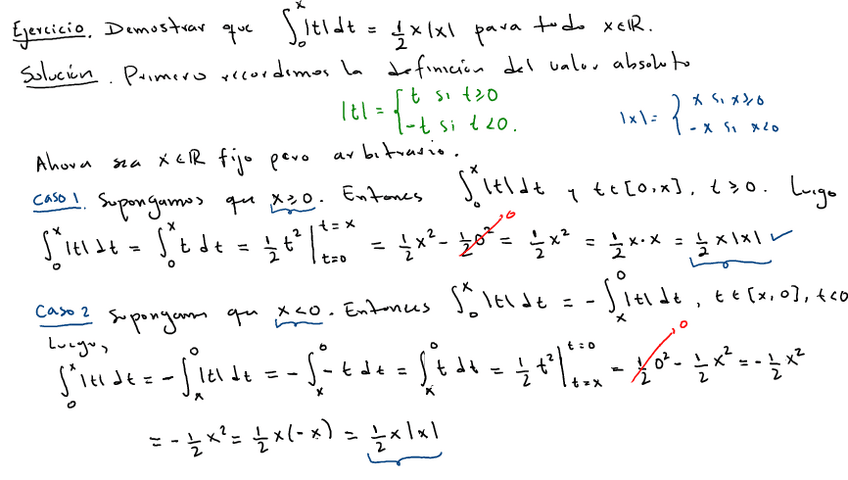 Ejercicio. Demostrar que ∫₀ˣ |t| dt = ½ x|x| para todo x∈ℝ.
Solución. Primero recordemos la definición del valor absoluto
|t| = { t si t≥0
-t si t<0.
|x| = { x si x≥0
-x si x<0
Ahora sea x∈ℝ fijo pero arbitrario.
Caso 1. Supongamos que x≥0. Entonces ∫₀ˣ |t| dt y t∈[0,x], t≥0. Luego
∫₀ˣ |t| dt = ∫₀ˣ t dt = ½ t² |_{t=0}^{t=x} = ½ x² - ½ 0² 0 = ½ x² = ½ x·x = ½ x|x| ✓
Caso 2 Supongamos que x<0. Entonces ∫₀ˣ |t| dt = - ∫ₓ⁰ |t| dt, t∈[x,0], t<0
Luego,
∫₀ˣ |t| dt = - ∫ₓ⁰ |t| dt = - ∫ₓ⁰ -t dt = ∫ₓ⁰ t dt = ½ t² |_{t=x}^{t=0} = ½ 0² 0 - ½ x² = - ½ x²
= - ½ x² = ½ x(-x) = ½ x|x|